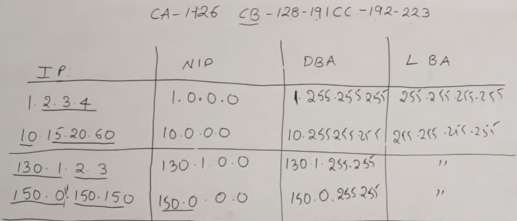 CA-1-126 CB-128-191 CC-192-223
IP NIP DBA LBA
1.2.3.4 1.0.0.0 1.255.255.255 255.255.255.255
10.15.20.60 10.0.0.0 10.255255255 255.255.255.255
130.1.2.3 130.1.0.0 130.1.255.255 "
150.0.150.150 150.0.0.0 150.0.255.255 "